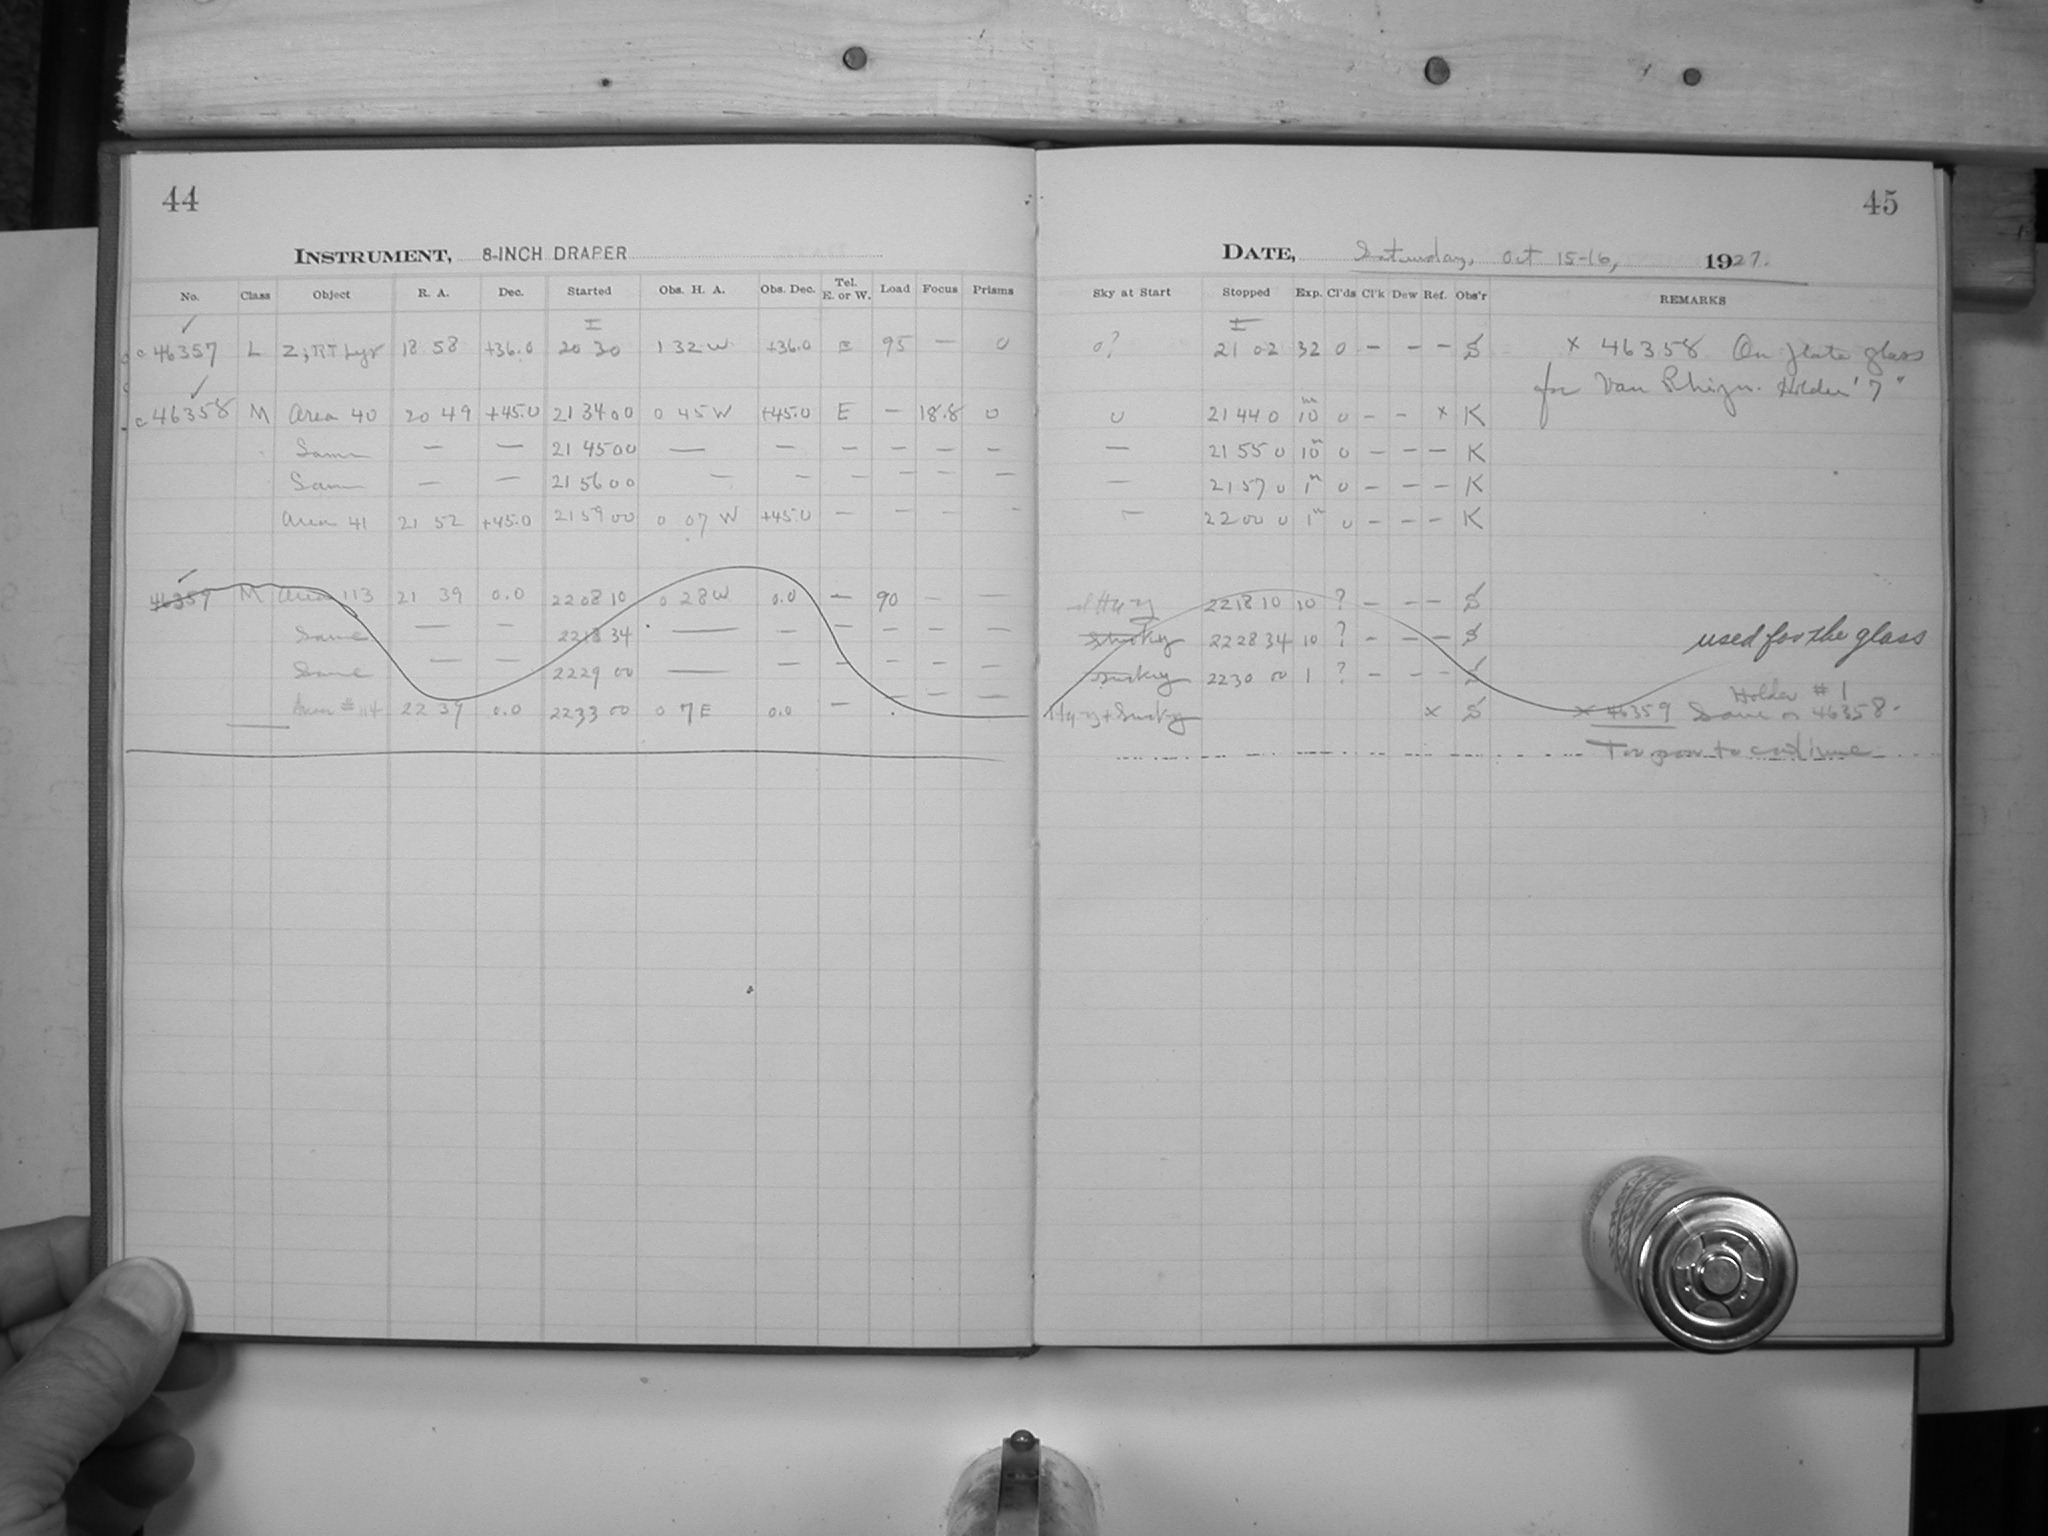 44
INSTRUMENT, 8-INCH DRAPER
No. Class Object R. A. Dec. Started Obs. H. A. Obs. Dec. Tel. E. or W. Load Focus Prisms
I
c 46357 L Z; RT Lyr 18 58 +36.0 20 30 1 32 W +36.0 E 95 — 0
c 46358 M Area 40 20 49 +45.0 21 34 00 0 45 W +45.0 E — 18.8 0
Same — — 21 45 00 — — — — — —
Same — — 21 56 00 — — — — — —
Area 41 21 52 +45.0 21 59 00 0 07 W +45.0 — — — —
46359 M Area 113 21 39 0.0 22 08 10 0 28 W 0.0 — 90 — —
Same — — 22 18 34 — — — — — —
Same — — 22 29 00 — — — — — —
Area # 114 22 39 0.0 22 33 00 0 7 E 0.0 — — — —
45
DATE, Saturday, Oct 15-16, 1927.
Sky at Start Stopped Exp. Cl'ds Cl'k Dew Ref. Obs'r REMARKS
I
0? 21 02 32 0 — — — S × 46358 On plate glass
for Van Rhijn. Holder "7"
0 21 44 0 10m 0 — — × K
— 21 55 0 10m 0 — — — K
— 21 57 0 1m 0 — — — K
— 22 00 0 1m 0 — — — K
Hazy 22 18 10 10 ? — — — S
Smoky 22 28 34 10 ? — — — S used for the glass
Smoky 22 30 00 1 ? — — — S
Holder # 1
Hazy + Smoky × S × 46359 Same as 46358.
Too poor to continue